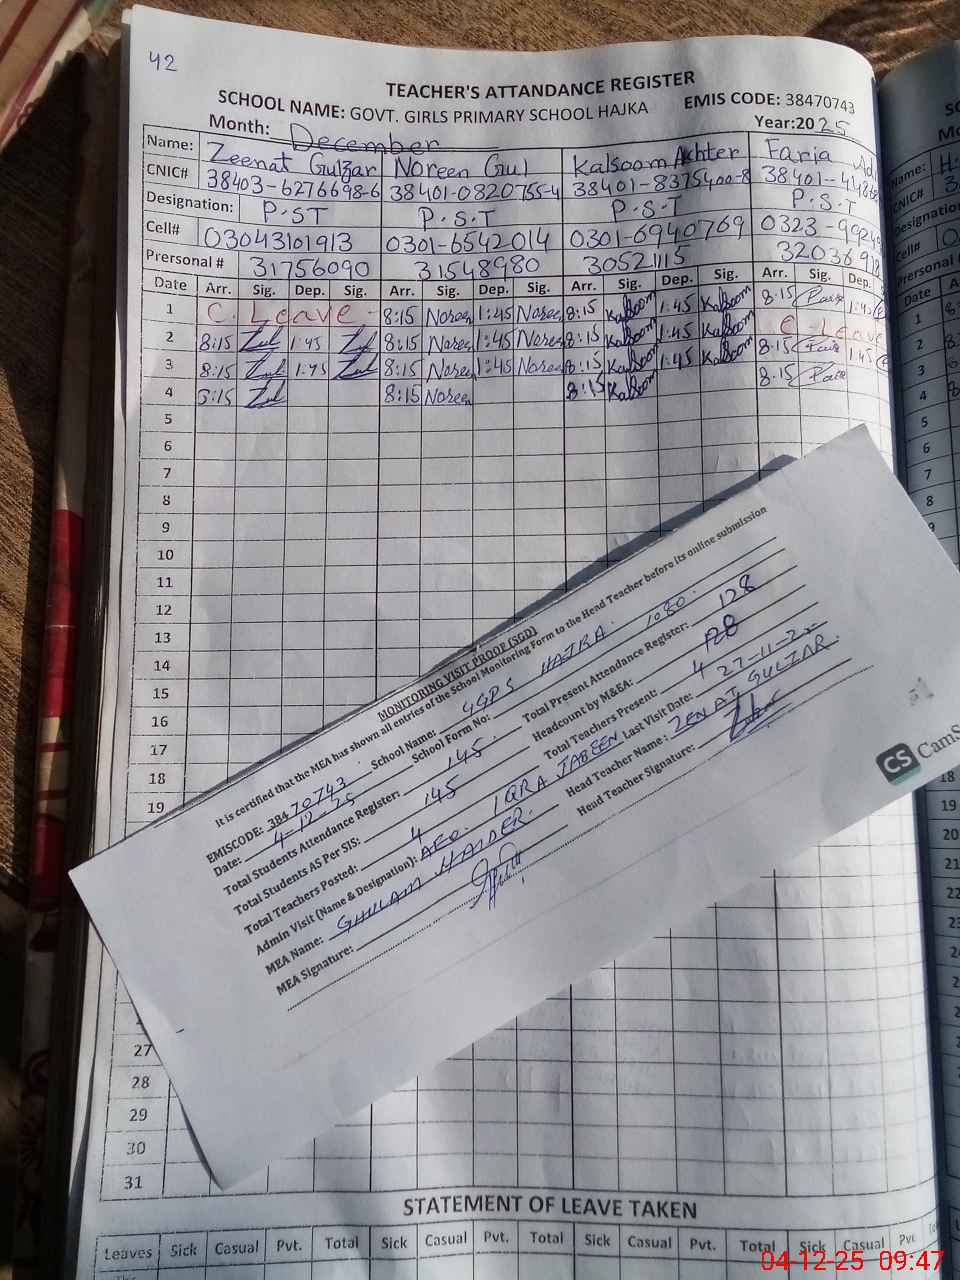 42
TEACHER'S ATTANDANCE REGISTER
SCHOOL NAME: GOVT. GIRLS PRIMARY SCHOOL HAJKA EMIS CODE: 38470743
Month: December Year:2025
Name: Zeenat Gulzar Noreen Gul Kalsoom Akhter Faria
CNIC# 38403-6276698-6 38401-0820755-4 38401-8375400-8 38401-
Designation: P.ST P.S.T P.S.T P.S.T
Cell# 03043101913 0301-6542014 0301-6940769 0323-
Prersonal # 31756090 31548980 30521115
Date Arr. Sig. Dep. Sig. Arr. Sig. Dep. Sig. Arr. Sig. Dep. Sig. Arr. Sig. Dep.
1 C. Leave 8:15 Noreen 1:45 Noreen 8:15 Kalsoom 1:45 Kalsoom 8.15 1:45
2 8:15 1:45 8:15 Noreen 1:45 Noreen 8:15 Kalsoom 1:45 Kalsoom C Leave
3 8:15 1:45 8:15 Noreen 1:45 Noreen 8:15 Kalsoom 1:45 Kalsoom 8.15 1:45
4 8:15 8:15 Noreen 8:15 Kalsoom 8.15
5
6
7
8
9
10
11
12
13
14
15
16
17
18
19
27
28
29
30
31
MONITORING VISIT PROOF (SGD)
It is certified that the MEA has shown all entries of the School Monitoring Form to the Head Teacher before its online submission
EMISCODE: 38470743 School Name: GGPS HAJKA
Date: 4-12-25 School Form No: 1080
Total Students Attendance Register: 145 Total Present Attendance Register: 128
Total Students AS Per SIS: 145 Headcount by M&EA: 128
Total Teachers Posted: 4 Total Teachers Present: 4
Admin Visit (Name & Designation): AEO. IQRA JABEEN Last Visit Date: 27-11-25
MEA Name: GHULAM HAIDER. Head Teacher Name: ZENAT GULZAR
MEA Signature: Head Teacher Signature:
CS CamS
STATEMENT OF LEAVE TAKEN
Leaves Sick Casual Pvt. Total Sick Casual Pvt. Total Sick Casual Pvt. Total Sick Casual Pvt
04-12-25 09:47